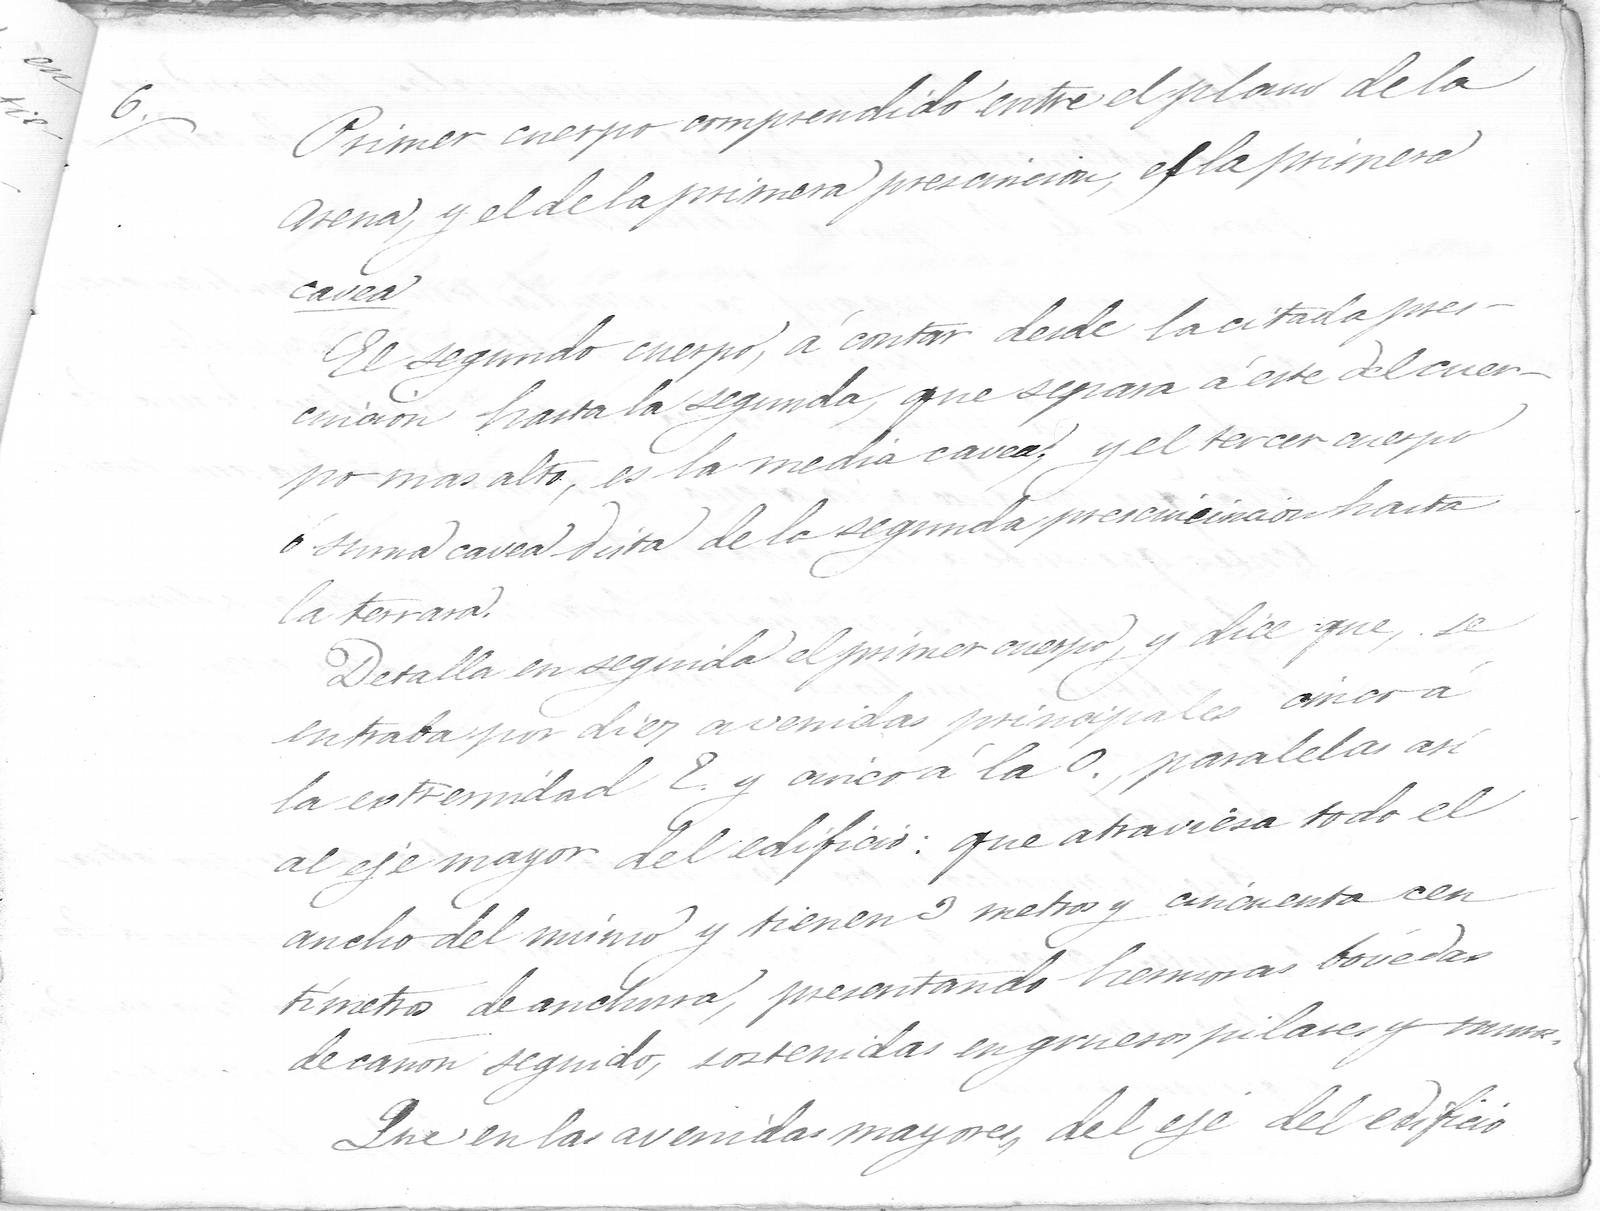 en
tie-
6.
Primer cuerpo comprendido entre el plano de la
arena, y el de la primera prescincion, es la primera
cavea
El segundo cuerpo, á contar desde la citada pres-
cincion hasta la segunda, que separa á este del cuer-
po mas alto, es la media cavea; y el tercer cuerpo
ó suma cavea dista de la segunda prescincion hasta
la terraza.
Detalla en seguida el primer cuerpo, y dice que, se
entraba por diez avenidas principales cinco á
la extremidad E. y cinco á la O., paralelas así
al eje mayor del edificio: que atraviesa todo el
ancho del mismo y tienen 3 metros y cincuenta cen
tímetros de anchura, presentando hermosas bóvedas
de cañon seguido, sostenidas en gruesos pilares y muros.
Que en las avenidas mayores, del eje del edificio